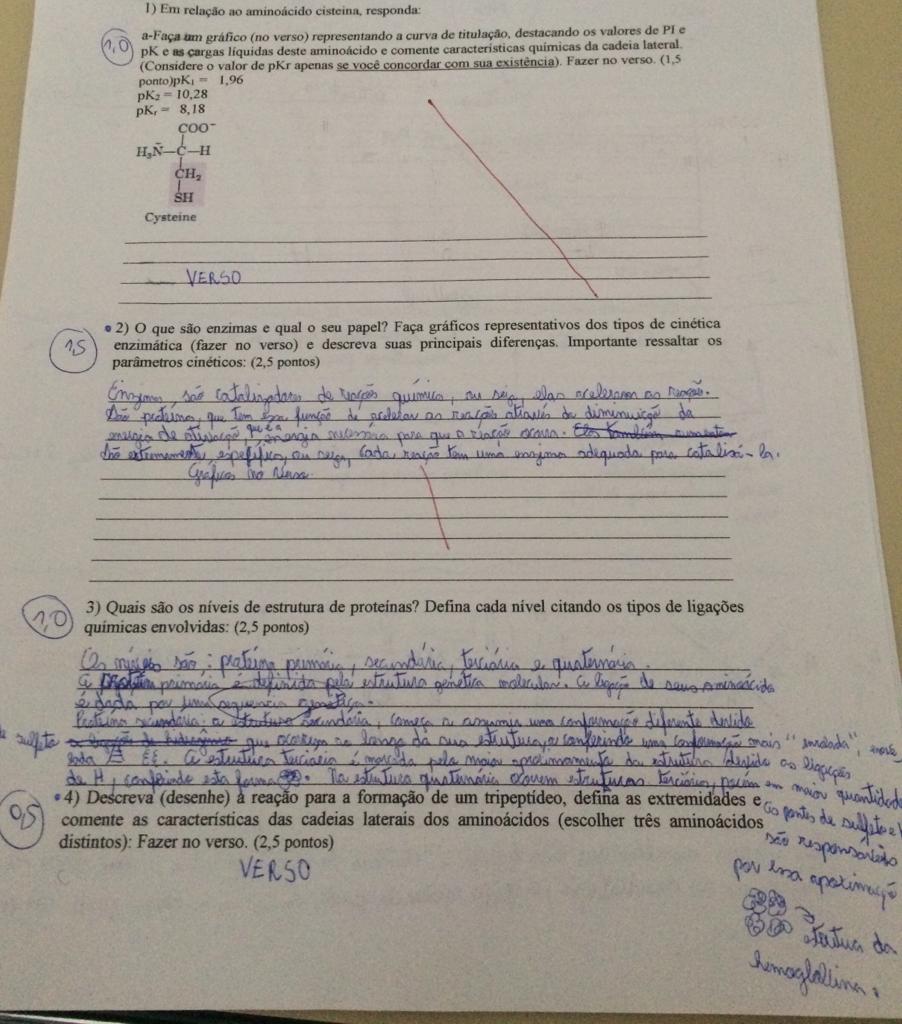 1) Em relação ao aminoácido cisteina, responda:
1,0
a-Faça um gráfico (no verso) representando a curva de titulação, destacando os valores de PI e
pK e as cargas líquidas deste aminoácido e comente características químicas da cadeia lateral.
(Considere o valor de pKr apenas se você concordar com sua existência). Fazer no verso. (1,5
ponto)pK₁ = 1,96
pK₂ = 10,28
pKᵣ = 8,18
COO⁻
H₃N—C—H
CH₂
SH
Cysteine
VERSO
1,5
• 2) O que são enzimas e qual o seu papel? Faça gráficos representativos dos tipos de cinética
enzimática (fazer no verso) e descreva suas principais diferenças. Importante ressaltar os
parâmetros cinéticos: (2,5 pontos)
Enzimas são catalizadores de reações química, ou seja, elas aceleram as reações.
São proteínas, que tem essa função de acelerar as reações através da diminuição da
energia de ativação, que é a energia necessária para que a reação ocorra. Elas também aumentam
São extremamente espefífica, ou seja, cada reação tem uma enzima adequada para catalisá-la.
Gráficos no verso.
1,0
3) Quais são os níveis de estrutura de proteínas? Defina cada nível citando os tipos de ligações
químicas envolvidas: (2,5 pontos)
Os níveis são: proteína primária, secundária, terciária e quaternária.
A primária é definida pela estrutura genética molecular. A ligação de seus aminoácido
é dada por uma sequencia genética.
Proteína secundária: a estrutura secundária, começa a assumir uma conformação diferente devido
a ligação de hidrogênio que ocorrem ao longo da sua estrutura, conferindo uma conformação mais "enrolada",
A estrutura terciária é marcada pela maior aproximamento da estrutura devido as ligações
de H, conferindo esta forma. Na estrutura quaternária ocorrem estruturas terciárias, porém em maior quantidade
as pontes de sulfeto
são responsáveis
por essa aproximação
estrutura da
hemoglobina.
0,5
• 4) Descreva (desenhe) a reação para a formação de um tripeptídeo, defina as extremidades e
comente as características das cadeias laterais dos aminoácidos (escolher três aminoácidos
distintos): Fazer no verso. (2,5 pontos)
VERSO